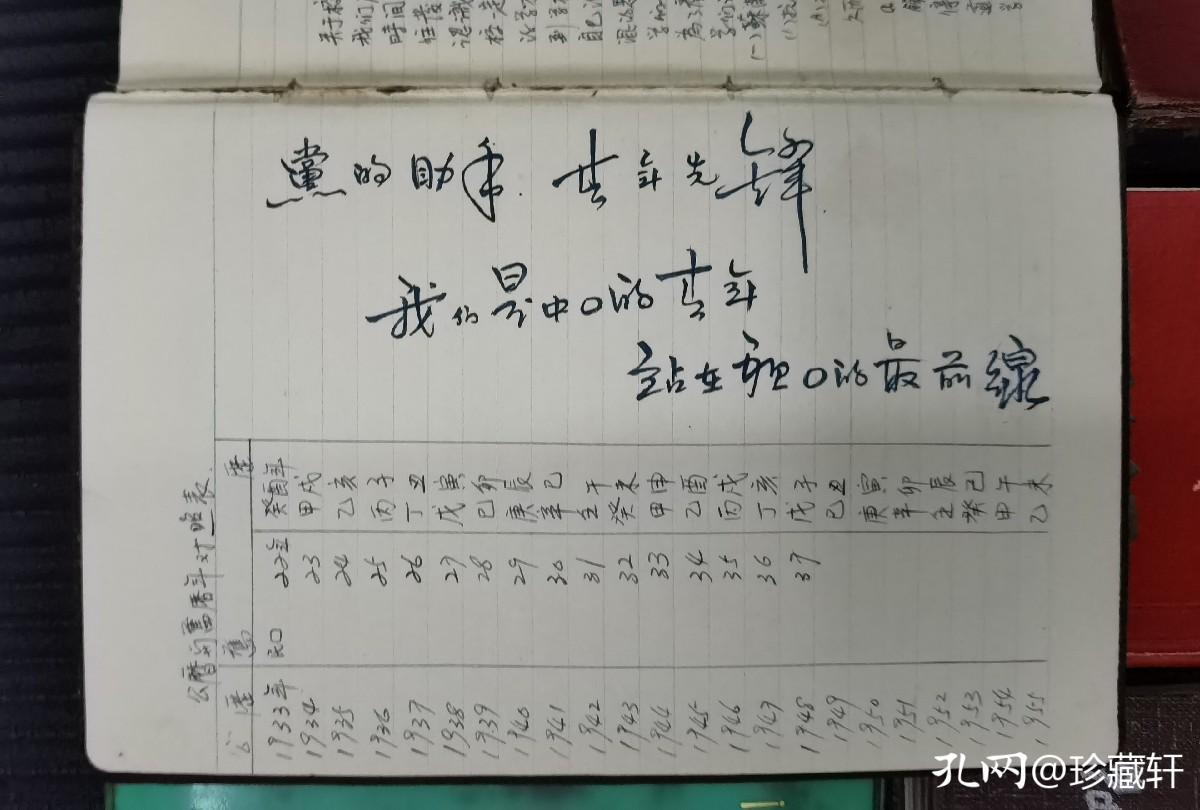 黨的助手.青年先鋒
我们是中〇的青年
站在祖〇的最前線
公曆与舊曆年对照表
公曆 舊曆
1933年 民〇22年 癸酉年
1934 23 甲戌
1935 24 乙亥
1936 25 丙子
1937 26 丁丑
1938 27 戊寅
1939 28 己卯
1940 29 庚辰
1941 30 辛巳
1942 31 壬午
1943 32 癸未
1944 33 甲申
1945 34 乙酉
1946 35 丙戌
1947 36 丁亥
1948 37 戊子
1949 己丑
1950 庚寅
1951 辛卯
1952 壬辰
1953 癸巳
1954 甲午
1955 乙未
孔网@珍藏轩